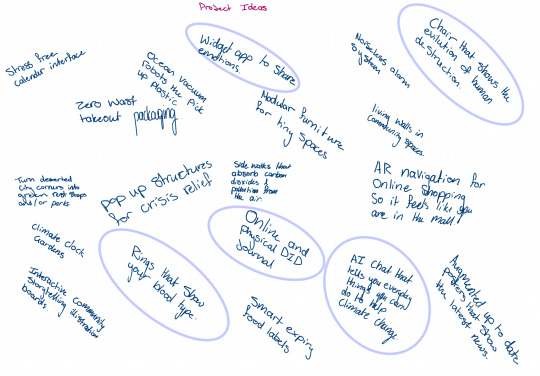 Project Ideas
Stress free
calendar interface
Ocean vacuum
robots tha pick
up plastic
Widget app to share
emotions.
Noiseless alarm
system
Chair that shows the
evilution of human
destruction.
Zero wast
takeout packaging
Modular furniture
for tiny spaces
living walls in
community spaces.
Turn deserted
city corners into
modern rest stops
and/or parks
Pop up structures
for crisis relief
Side walks that
absorb carbon
dioxides &
pollution from
the air.
AR navigation for
Online shopping
So it feels like you
are in the mall!
Climate clock
Gardens
Rings that show
your blood type.
Online and
physical DID
Journal
AI chat that
tells you everyday
things you can
do to help
Climate change.
Augmented up to date
posters that show
the latest news.
Interactive community
storytelling illustration
boards
Smart expiry
food labels